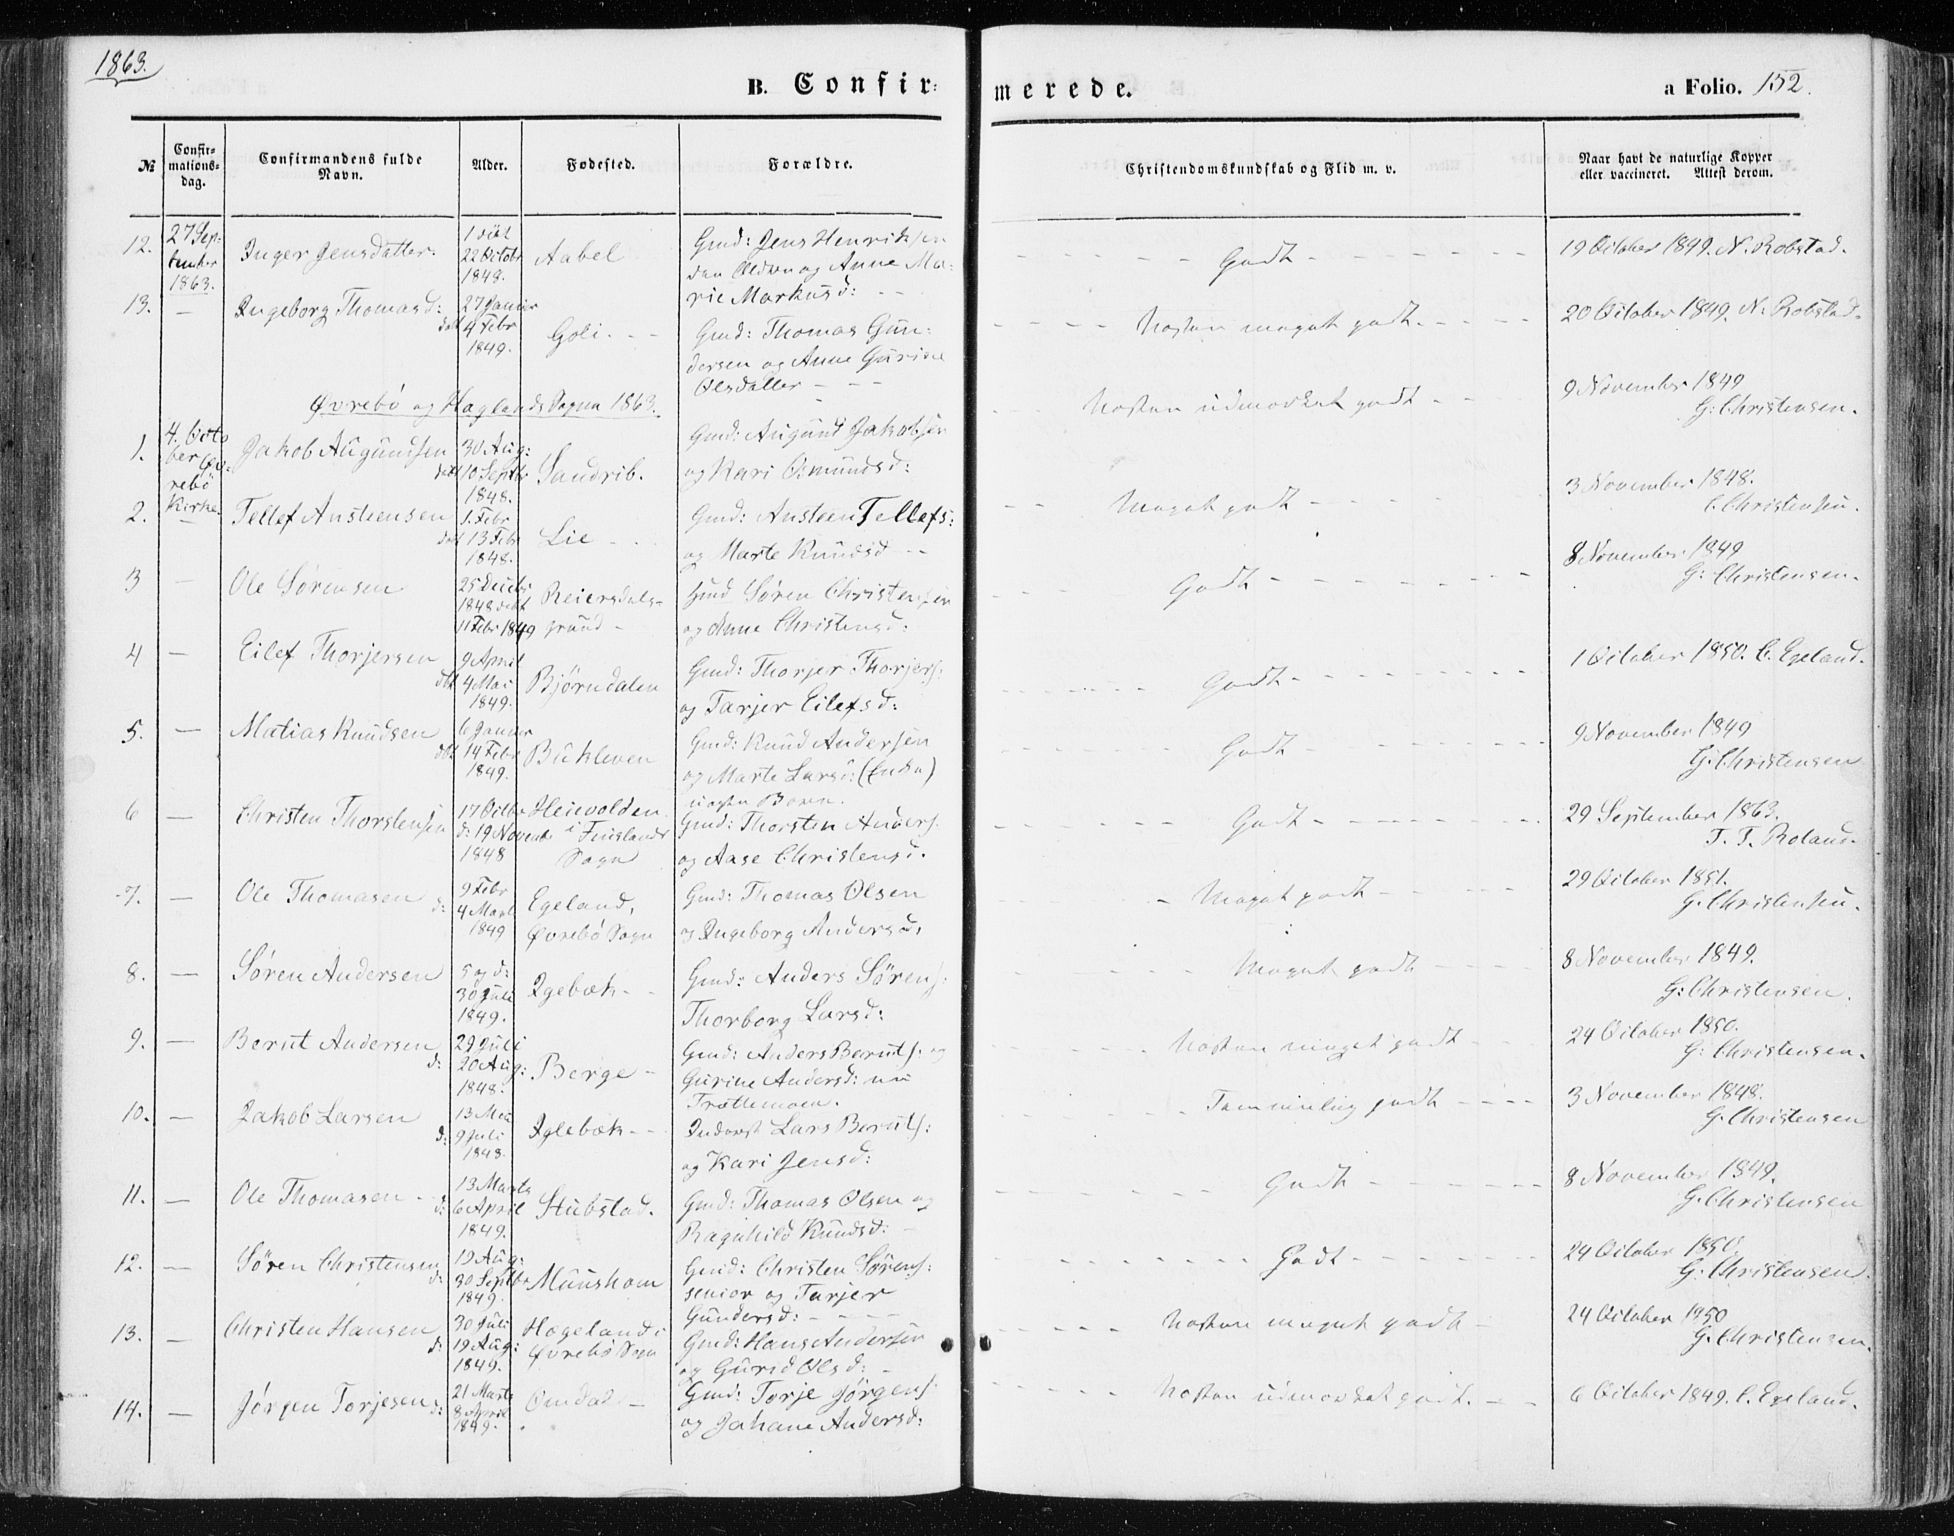 1863.
B. Confir: merede. a Folio. 152.
№ Confir-mations-dag. Confirmandens fulde Navn. Alder. Fødested. Forældre. Christendomskundskab og Flid m. v. Naar havt de naturlige Kopper eller vaccineret. Attest derom.
12. 27 Sep: tember 1863. Inger Jensdatter. 22 Octobr 1848. Aabel Gmd: Jens Henriksen og Anne Ma: rie Markusd: Godt 19 October 1849. N. Robstad.
13. — Ingeborg Thomasd: 27 Januar døbt 4 Febr 1849. Goli. Gmd: Thomas Gun: dersen og Anne Gurine Olsdatter Næsten meget godt. 20 October 1849. N. Robstad.
Øvrebö og Hægelands Sogne 1863.
1. 4. Octo ber Øv: rebö Kirke Jakob Augundsen 30 Aug: døbt 10 Septbr 1848. Sandrib. Gmd: Augund Jakobsen og Kari Osmundsd: Næsten udmærket godt 9 November 1849 G: Christensen.
2. — Tellef Austensen 1. Febr døbt 13 Febr 1848. Lie Gmd: Austeen Tellefs: og Marte Knudsd Meget godt 3 November 1848. G. Christensen.
3 — Ole Sørensen 25 Decbr 1848 døbt 11 Febr 1849 Reiersdals-grund Hmd Søren Christensen og Anne Christensd: Godt 8 November 1849 G: Christensen.
4 — Eilef Thorjersen 9 April dbt 4 Mai 1849. Bjørndalen Gmd: Thorjer Thorjers: og Tarjer Eilefsd: Godt 1 October 1850. C. Egeland.
5. — Matias Knudsen 6 Januar dbt 14 Febr 1849. Bukleven Gmd: Knud Andersen og Marte Larsd: (Enke) uægte Barn. Godt 9 November 1849 G. Christensen
6 — Christen Thorstensen 17 Octbr d: 19 Novemb 1848 Heievolden i Finslands Sogn Gmd: Thorsten Anders: og Aase Christensd. Godt 29 September 1863. T. T. Roland.
7. — Ole Thomasen 9 Febr d: 4 Marts 1849 Egeland, Øvrebö Sogn Gmd: Thomas Olsen og Ingeborg Andersd. Meget godt 29 October 1851. G. Christensen.
8. — Søren Andersen 5 og d: 30 Juli 1849. Igebæk Gmd: Anders Sörens: Thorborg Larsd: Meget godt 8 November 1849. G: Christensen.
9. — Berut Andersen 29 Juli d: 20 Aug: 1848. Berge Gmd: Anders Beruts: og Gurine Andersd: nu Trættemoen. Næsten meget godt 24 October 1850. G: Christensen.
10. — Jakob Larsen 13 Mai d: 9 Juli 1848. Iglebæk Inderst Lars Beruts: og Kari Jensd: Temmelig godt 3 November 1848. G. Christensen
11. — Ole Thomasen 13 Marts d: 6 April 1849. Stubstad. Gmd: Thomas Olsen og Ragnhild Knudsd: Godt 8 November 1849. G. Christensen
12. — Søren Christensen 19 Aug: d: 30 Septbr 1849. Muushom Gmd: Christen Sørens: senior og Tarjer Gundersd: Godt 24 October 1850. G. Christensen.
13. — Christen Hansen 30 Juli d: 19 Aug: 1849. Hægeland i Øvrebö Sogn Gmd: Hans Andersen og Gurid Olsd: Næsten meget godt 24 October 1850 G. Christensen.
14. — Jörgen Torjesen 21 Marts d: 8 April 1849. Omdal Gmd: Torje Jörgens: og Johane Andersd: Næsten udmærket godt. 6 October 1849. C. Egeland.